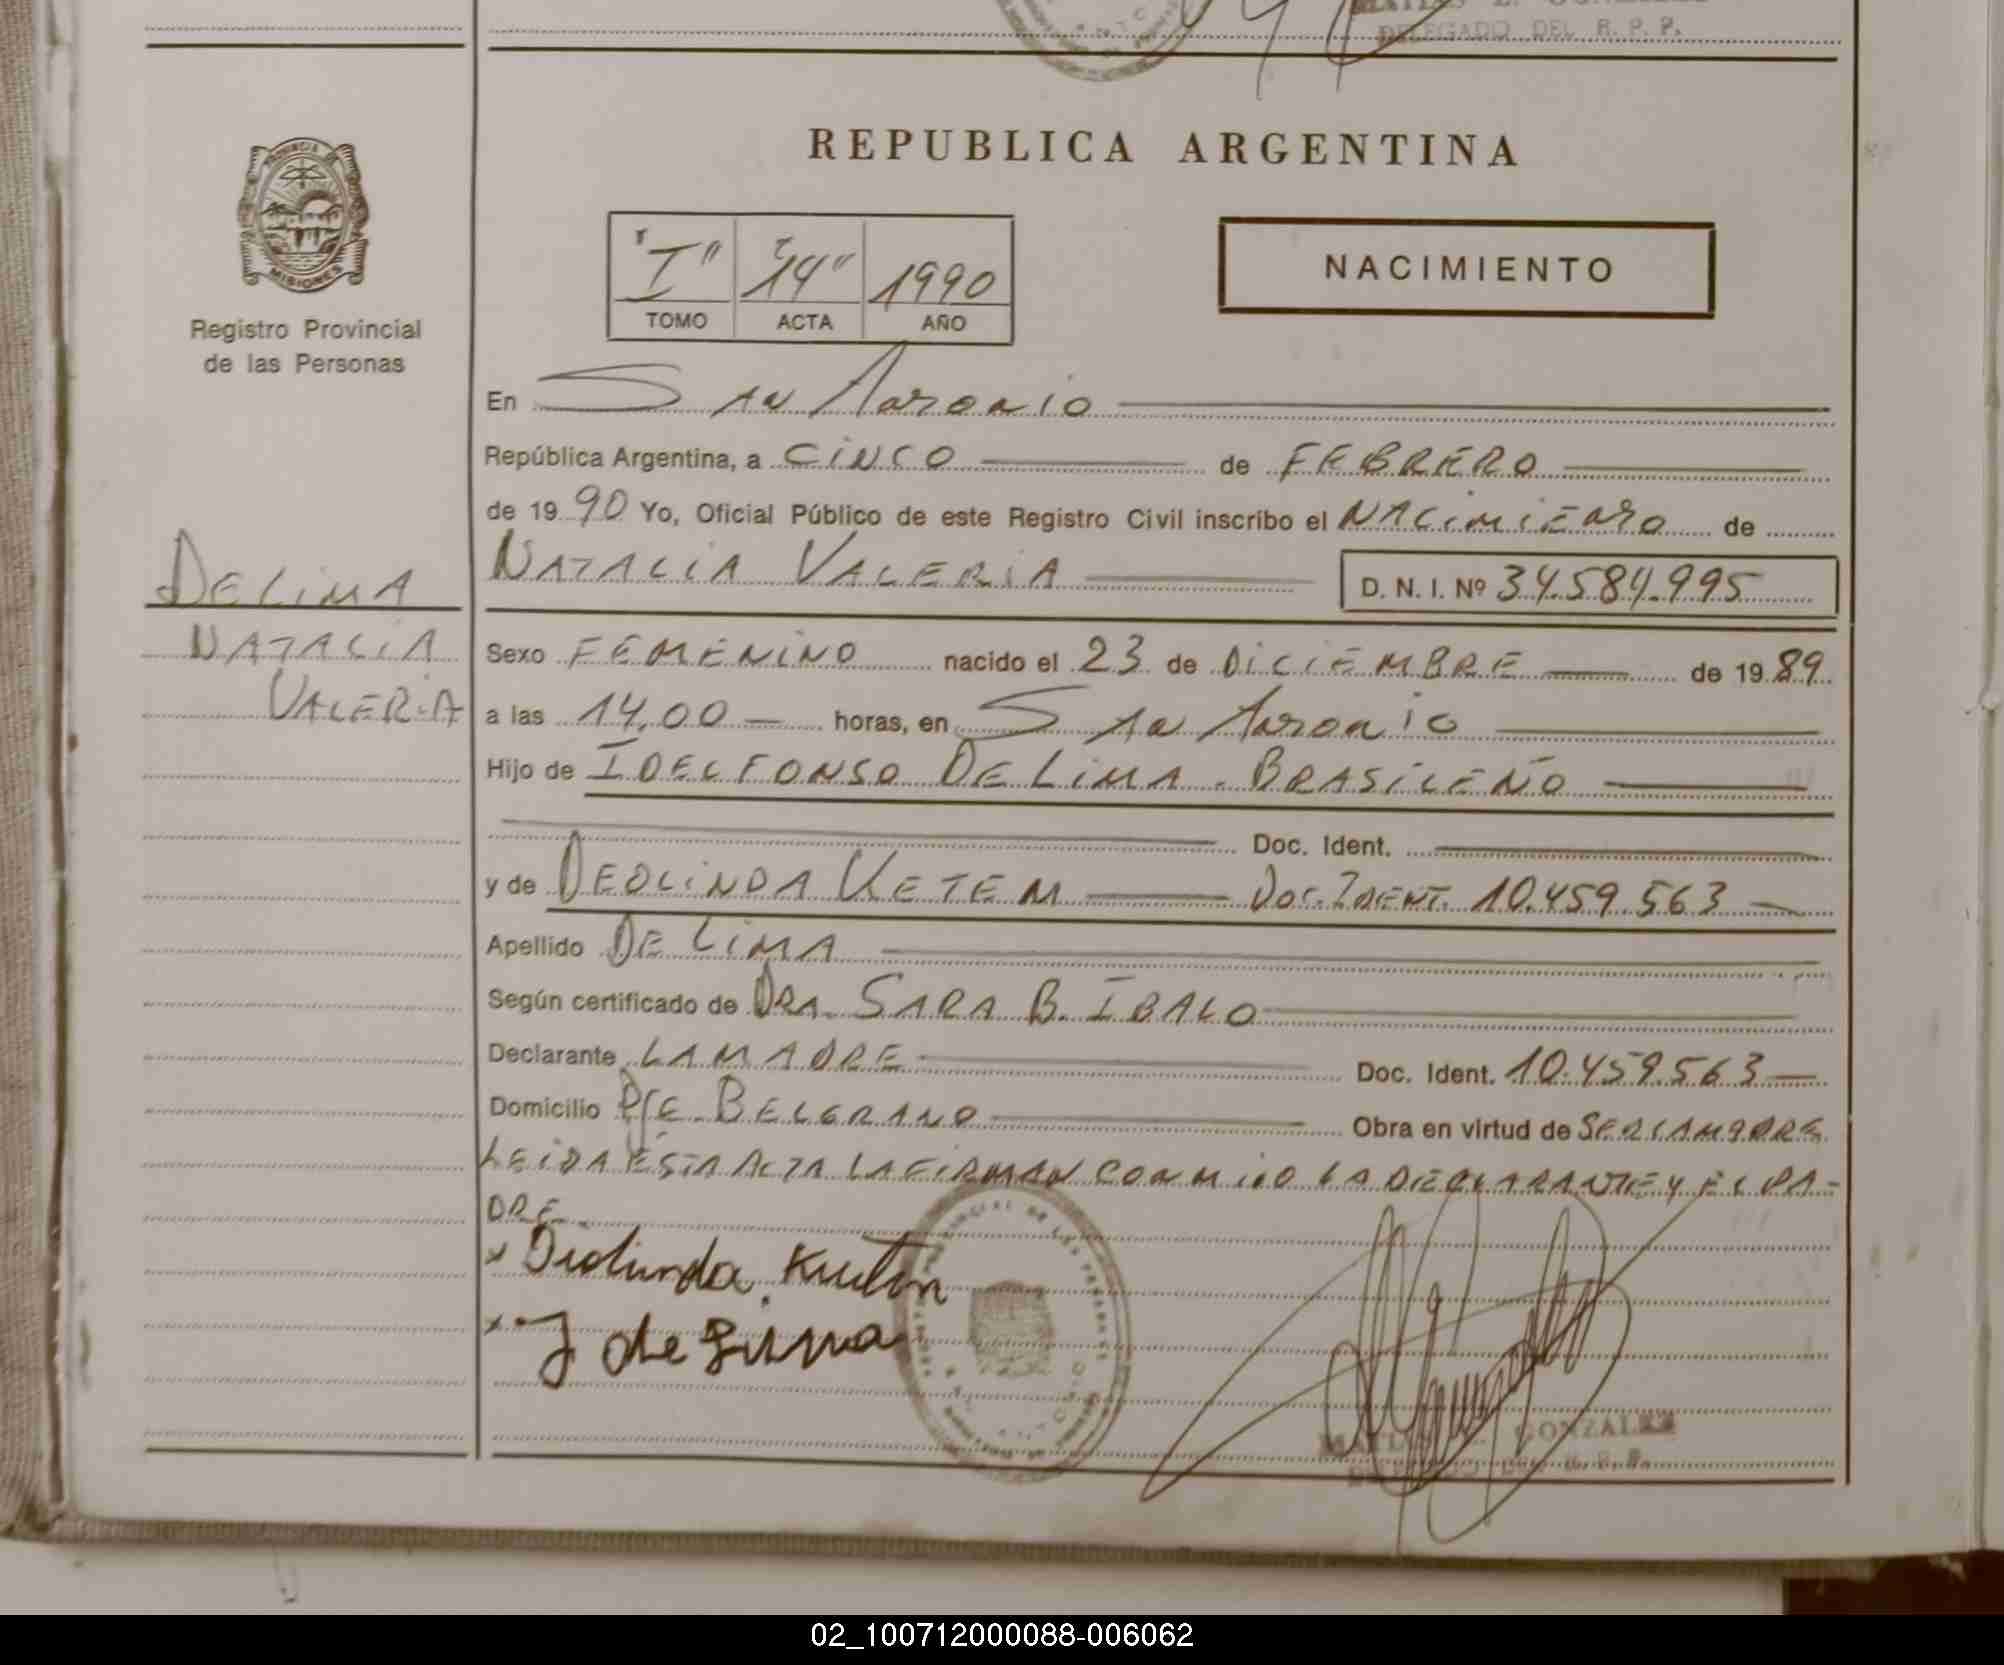 DELEGADO DEL R. P. P.
REPUBLICA ARGENTINA
PROVINCIA DE
MISIONES
Registro Provincial
de las Personas
"I" "14" 1990
TOMO ACTA AÑO
NACIMIENTO
En SAN ANTONIO
República Argentina, a CINCO de FEBRERO
de 1990 Yo, Oficial Público de este Registro Civil inscribo el NACIMIENTO de
NATALIA VALERIA D. N. I. Nº 34.584.995
DE LIMA
NATALIA
VALERIA
Sexo FEMENINO nacido el 23 de DICIEMBRE de 1989
a las 14,00 horas, en SAN ANTONIO
Hijo de IDELFONSO DE LIMA. BRASILEÑO
Doc. Ident.
y de DEOLINDA KETEM Doc. IDENT. 10.459.563
Apellido DE LIMA
Según certificado de DRA. SARA B. IBALO
Declarante LA MADRE Doc. Ident. 10.459.563
Domicilio PJE. BELGRANO Obra en virtud de SER LA MADRE
LEIDA ÉSTA ACTA LA FIRMAN CONMIGO LA DECLARANTE Y EL PA-
DRE.
x Diolinda
x J de Lima
GONZALEZ
02_100712000088-006062